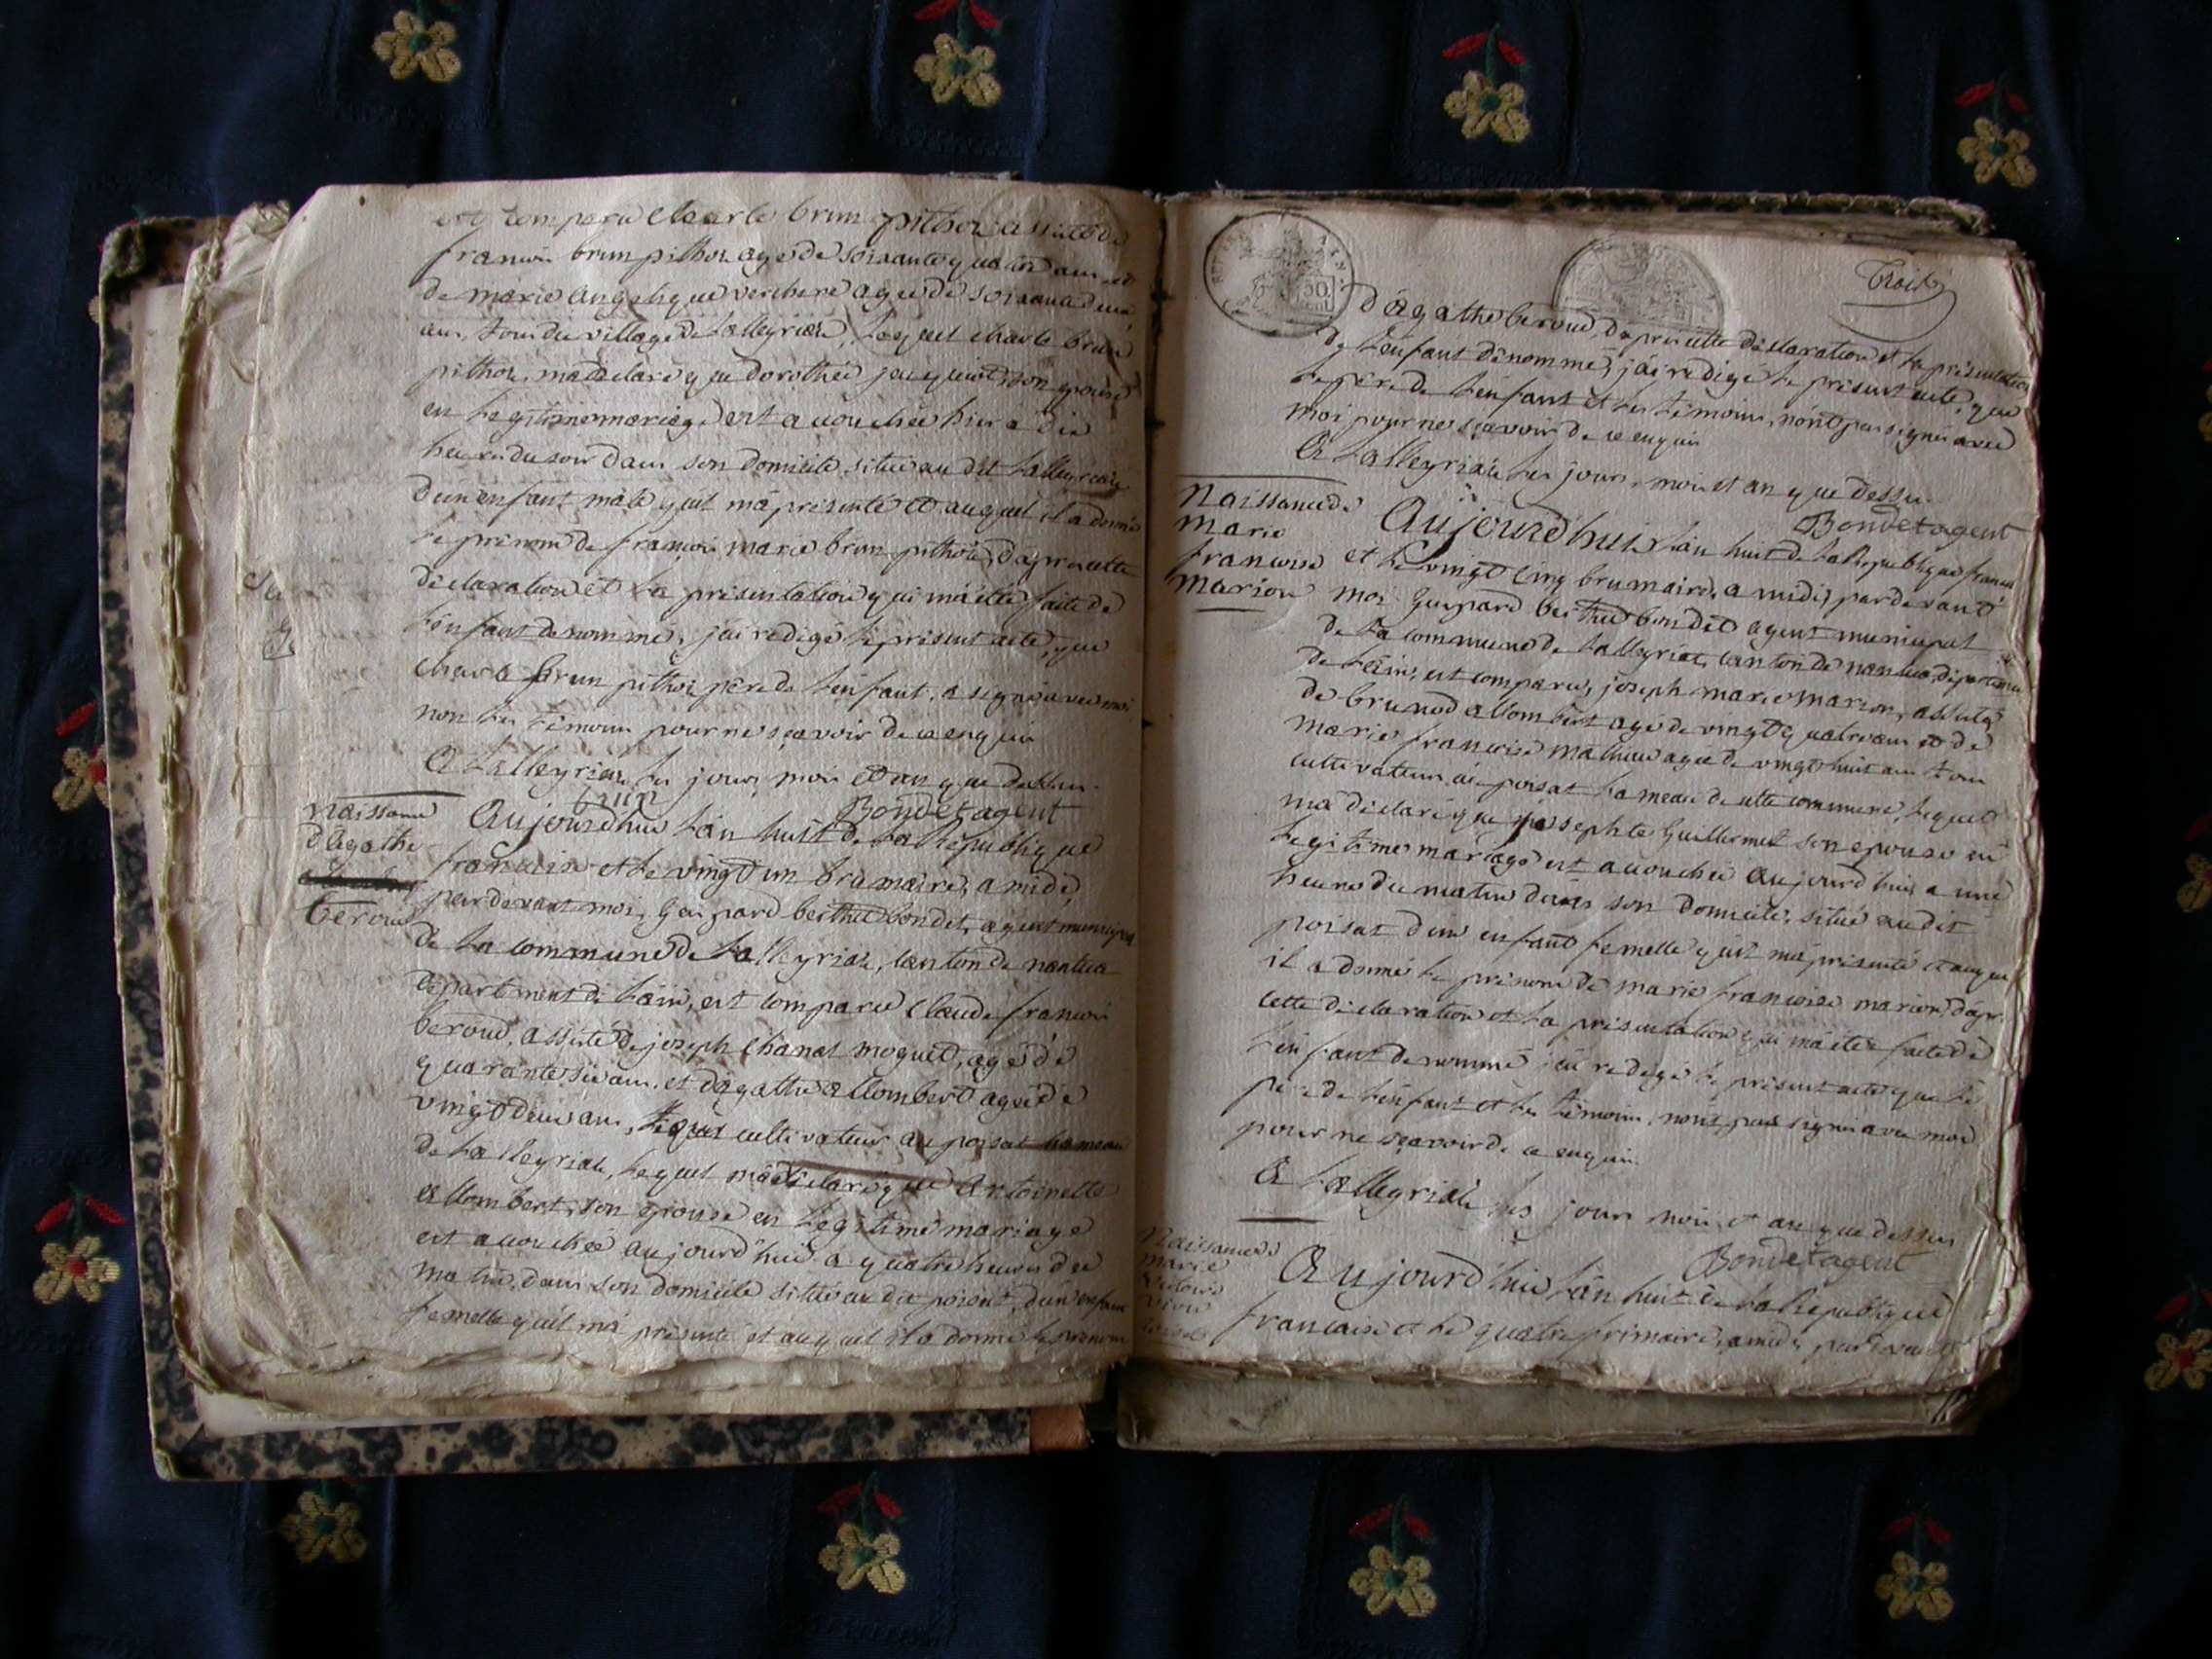 est comparu Charle brun pithoz assisté de
francois brun pithoz agé de soixante quatre ans et
de marie angelique verchere agée de soixante deux
ans, tous du village de Lalleyriat, lequel charle brun
pithoz, ma déclaré que dorothée jacquinod son epouse
en Legitime mariage est accouchée hier a dix
heures du soir dans son domicile situé au dit Lalleyriat
d'un enfant mâle quil má présenté et auquel il a donné
le prénom de francois marie brun pithoz, d'aprés cette
déclaration et la présentation qui má étté faite de
Lénfant denommé, j'ai redigé le présent acte, que
charle brun pithoz pere de Lénfant, a signé avec moi
non les témoins pour ne sçavoir de ce enquis
A Lalleyriat les jour, mois et an que dessus.
brun Bondet agent
naissance
d'agathe
beroud
Aujourdhui Lán huit de La République
francaise et le vingt un brumaire, a midi,
par devant moi, Gaspard berthet bondet, agent municipal
de La commune de Lalleyriat, canton de nantua
département de Láin, est comparu Claude francois
beroud, assisté de joseph Chanal moguet, agé de
quarante six ans, et dágathe allombert agée de
vingt deux ans, cultivateurs au poisat hameau
de Lalleyriat, Lequel má déclaré que Antoinette
allombert, son epouse en Legitime mariage
est accouchée aujourd'hui a quatre heures du
matin, dans son domicile situé au dit poisat, d'un enfant
femelle quil má présenté et auquel il a donné le prenom
trois
d'agathe beroud, d'apres cette déclaration et la présentation
de Lénfant dénommé, j'ai redigé le présent acte, que
le pere de Lénfant et les témoins, nónt pas signé avec
moi pour ne sçavoir de ce enquis
A Lalleyriat les jour, mois et an que dessus.
Bondet agent
Naissance de
marie
francoise
marion
Aujourdhui Lán huit de La République francaise
et le vingt cinq brumaire, a midi, pardevant
moi Gaspard berthet bondet agent municipal
de La commune de Lalleyriat, canton de nantua, département
de Láin, est comparu, joseph marie marion, assisté
de brunod allombert agé de vingt quatre ans et de
marie francoise mathieu agée de vingt huit ans tous
cultivateurs au poisat hameau de cette commune, Lequel
má déclaré que josephte Guillermet son epouse en
Legitime mariage est accouchée aujourd'hui a une
heure du matin dans son domicile, situé au dit
poisat d'un enfant femelle quil má présenté et auquel
il a donné le prenom de marie francoise marion, d'apres
cette déclaration et La présentation qui má étée faite de
Lénfant denommé j'ai redigé le présent acte que le
pere de Lénfant et les témoins, nont pas signé avec moi
pour ne sçavoir de ce enquis.
A Lalleyriat les jour mois et an que dessus
Bondet agent
Naissance de
marie
victoire
Aujourd'hui Lán huit de La République
francaise et le quatre frimaire, a midi, pardevant